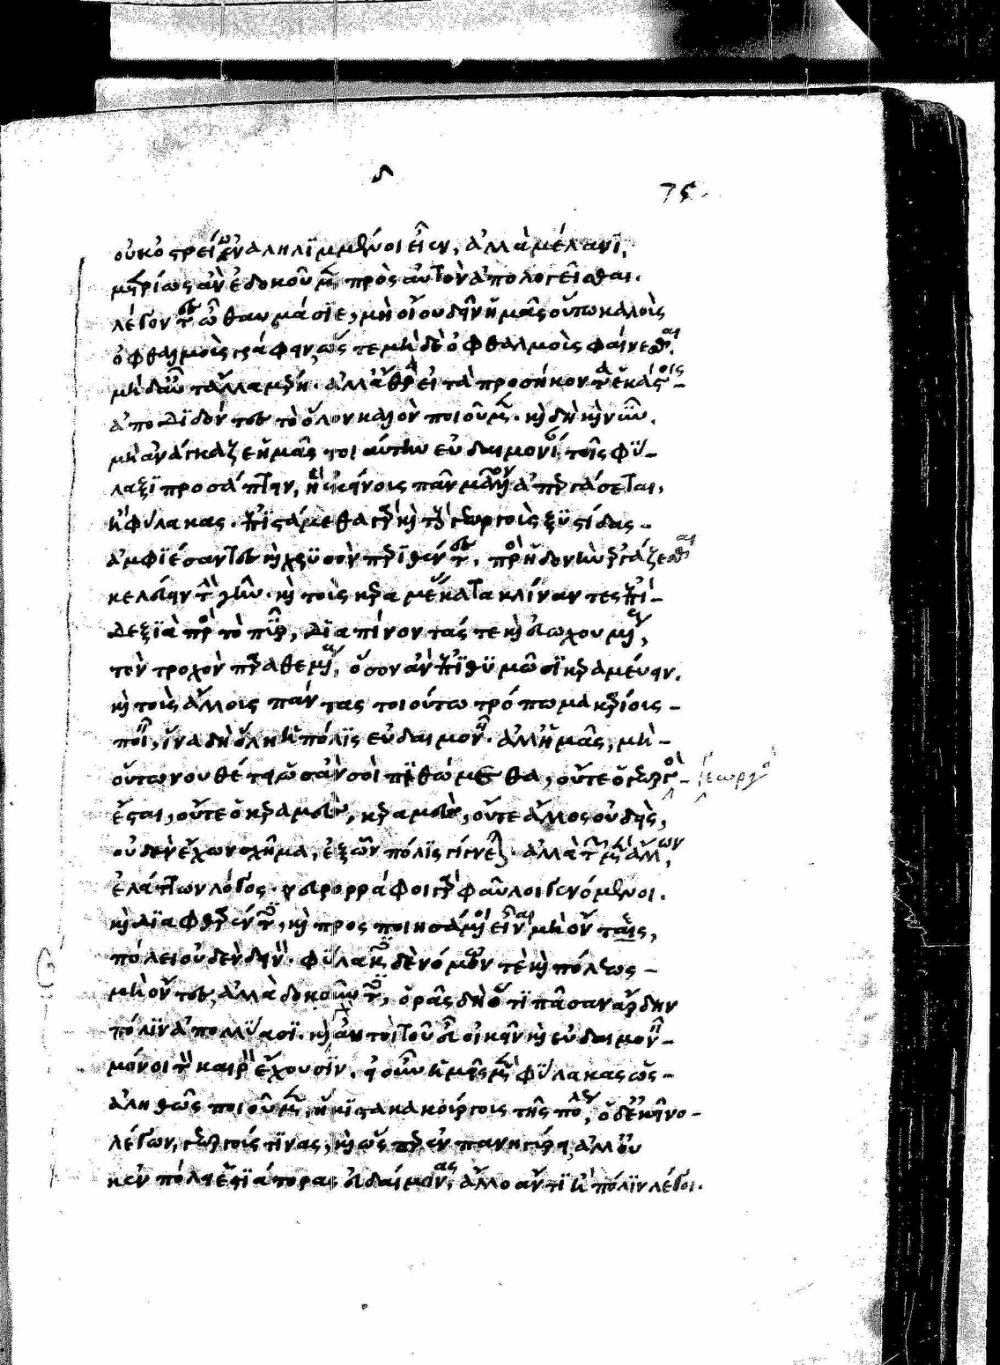 75.
οὐκ ὀστρείῳ ἐναληλιμμένοι εἶεν, ἀλλὰ μέλανι,
μετρίως ἂν ἐδοκοῦμεν πρὸς αὐτὸν ἀπολογεῖσθαι.
λέγοντες ὦ θαυμάσιε, μὴ οἴου δεῖν ἡμᾶς οὕτω καλοὺς
ὀφθαλμοὺς γράφειν, ὥς τε μὴ δὲ ὀφθαλμοὺς φαίνεσθαι.
μὴ δ' αὖ τἄλλα μέρη. ἀλλ' ἄθρει εἰ τὰ προσήκοντα ἑκάστοις
ἀποδιδόντες τὸ ὅλον καλὸν ποιοῦμεν. καὶ δὴ καὶ νῦν.
μὴ ἀνάγκαζε ἡμᾶς τοιαύτην εὐδαιμονίαν τοῖς φύ-
λαξι προσάπτειν, ἣ ἐκείνους πᾶν μᾶλλον ἀπεργάσεται,
ἢ φύλακας. ἐπιστάμεθα γὰρ καὶ τοὺς γεωργοὺς ξυστίδας
ἀμφιέσαντες καὶ χρυσὸν περιθέντες, πρὸς ἡδονὴν ἐργάζεσθαι
κελεύειν τὴν γῆν. καὶ τοὺς κεραμέας κατακλίναντες ἐπὶ
δεξιὰ πρὸς τὸ πῦρ, διαπίνοντάς τε καὶ εὐωχουμένους,
τὸν τροχὸν παραθεμένους, ὅσον ἂν ἐπιθυμῶσι κεραμεύειν.
καὶ τοὺς ἄλλους πάντας τοιούτω τρόπω μακαρίους
ποιεῖν, ἵνα δὴ ὅλη ἡ πόλις εὐδαιμονῇ. ἀλλ' ἡμᾶς, μὴ
οὕτω νουθέτει ὡς ἄν σοι πειθώμεθα, οὔτε ὁ γεωργὸς γεωργὸς
ἔσται, οὔτε ὁ κεραμεὺς, κεραμεὺς, οὔτε ἄλλος οὐδεὶς,
οὐδὲν ἔχων σχῆμα, ἐξ ὧν πόλις γίγνεται. ἀλλὰ τῶν μὲν ἄλλων,
ἐλάττων λόγος. νευρορράφοι γὰρ φαῦλοι γενόμενοι.
καὶ διαφθαρέντες, καὶ προσποιησάμενοι εἶναι μὴ ὄντες,
πόλει οὐδὲν δεινόν. φύλακες δὲ νόμων τὲ καὶ πόλεως
μὴ ὄντες ἀλλὰ δοκοῦντες, ὁρᾶς δὴ ὅτι πᾶσαν ἄρδην
πόλιν ἀπολλύασι. καὶ αὖ τοῦ εὖ οἰκεῖν καὶ εὐδαιμονεῖν
μόνοι τὸν καιρὸν ἔχουσιν. εἰ οὖν ἡμεῖς μὲν φύλακας ὡς
ἀληθῶς ποιοῦμεν, ἥκιστα κακούργους τῆς πόλεως, ὁ δ' ἐκεῖνο
λέγων, γεωργούς τινας, καὶ ὥσπερ ἐν πανηγύρει ἀλλ' οὐ
κ ἐν πόλει ἑστιάτορας εὐδαίμονας, ἄλλο ἄν τι ἢ πόλιν λέγοι.